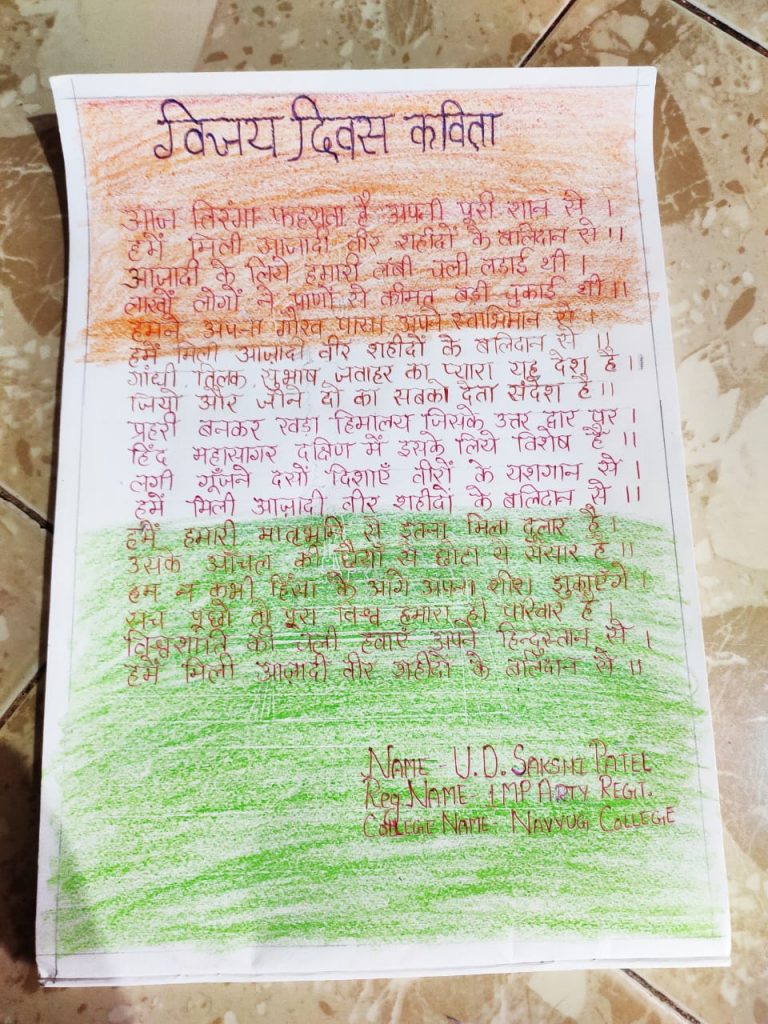 विजय दिवस कविता
आज तिरंगा फहराता है अपनी पूरी शान से ।
हमें मिली आज़ादी वीर शहीदों के बलिदान से ।।
आज़ादी के लिये हमारी लंबी चली लड़ाई थी ।
लाखों लोगों ने प्राणों से कीमत बड़ी चुकाई थी ।।
हमने अपना गौरव पाया अपने स्वाभिमान से ।
हमें मिली आज़ादी वीर शहीदों के बलिदान से ।।
गांधी तिलक सुभाष जवाहर का प्यारा यह देश है ।
जियो और जीने दो का सबको देता संदेश है ।।
प्रहरी बनकर खड़ा हिमालय जिसके उत्तर द्वार पर ।
हिंद महासागर दक्षिण में इसके लिये विशेष है ।।
लगी गूँजने दसों दिशाएँ वीरों के यशगान से ।
हमें मिली आज़ादी वीर शहीदों के बलिदान से ।।
हमें हमारी मातृभूमि से इतना मिला दुलार है ।
उसके आँचल की छैयाँ से छोटा ये संसार है ।।
हम न कभी हिंसा के आगे अपना शीश झुकाएंगे ।
सच पूछो तो पूरा विश्व हमारा ही परिवार है ।
विश्वशांति की चली हवाएँ अपने हिन्दुस्तान से ।
हमें मिली आज़ादी वीर शहीदों के बलिदान से ।।
NAME - U.D. SAKSHI PATEL
Reg NAME - 1 MP ARTY REGT.
COLLEGE NAME - NAVYUG COLLEGE